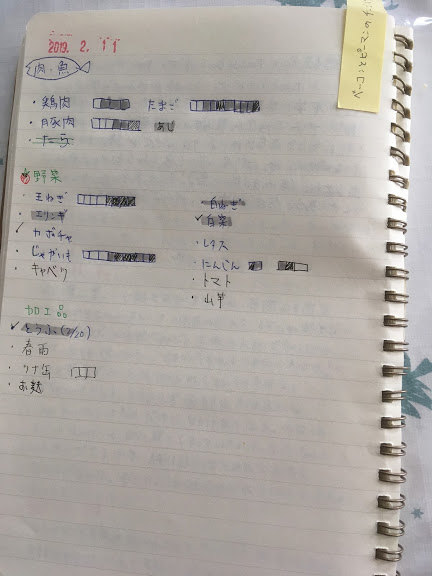 2019. 2. 11
肉・魚
・鶏肉 たまご
・豚肉 あじ
・たら
野菜
・玉ねぎ
・エリンギ
・カボチャ
・じゃがいも
・キャベツ
・白ねぎ
・白菜
・レタス
・にんじん
・トマト
・山芋
加工品
・とうふ(2/20)
・春雨
・ツナ缶
・お麩